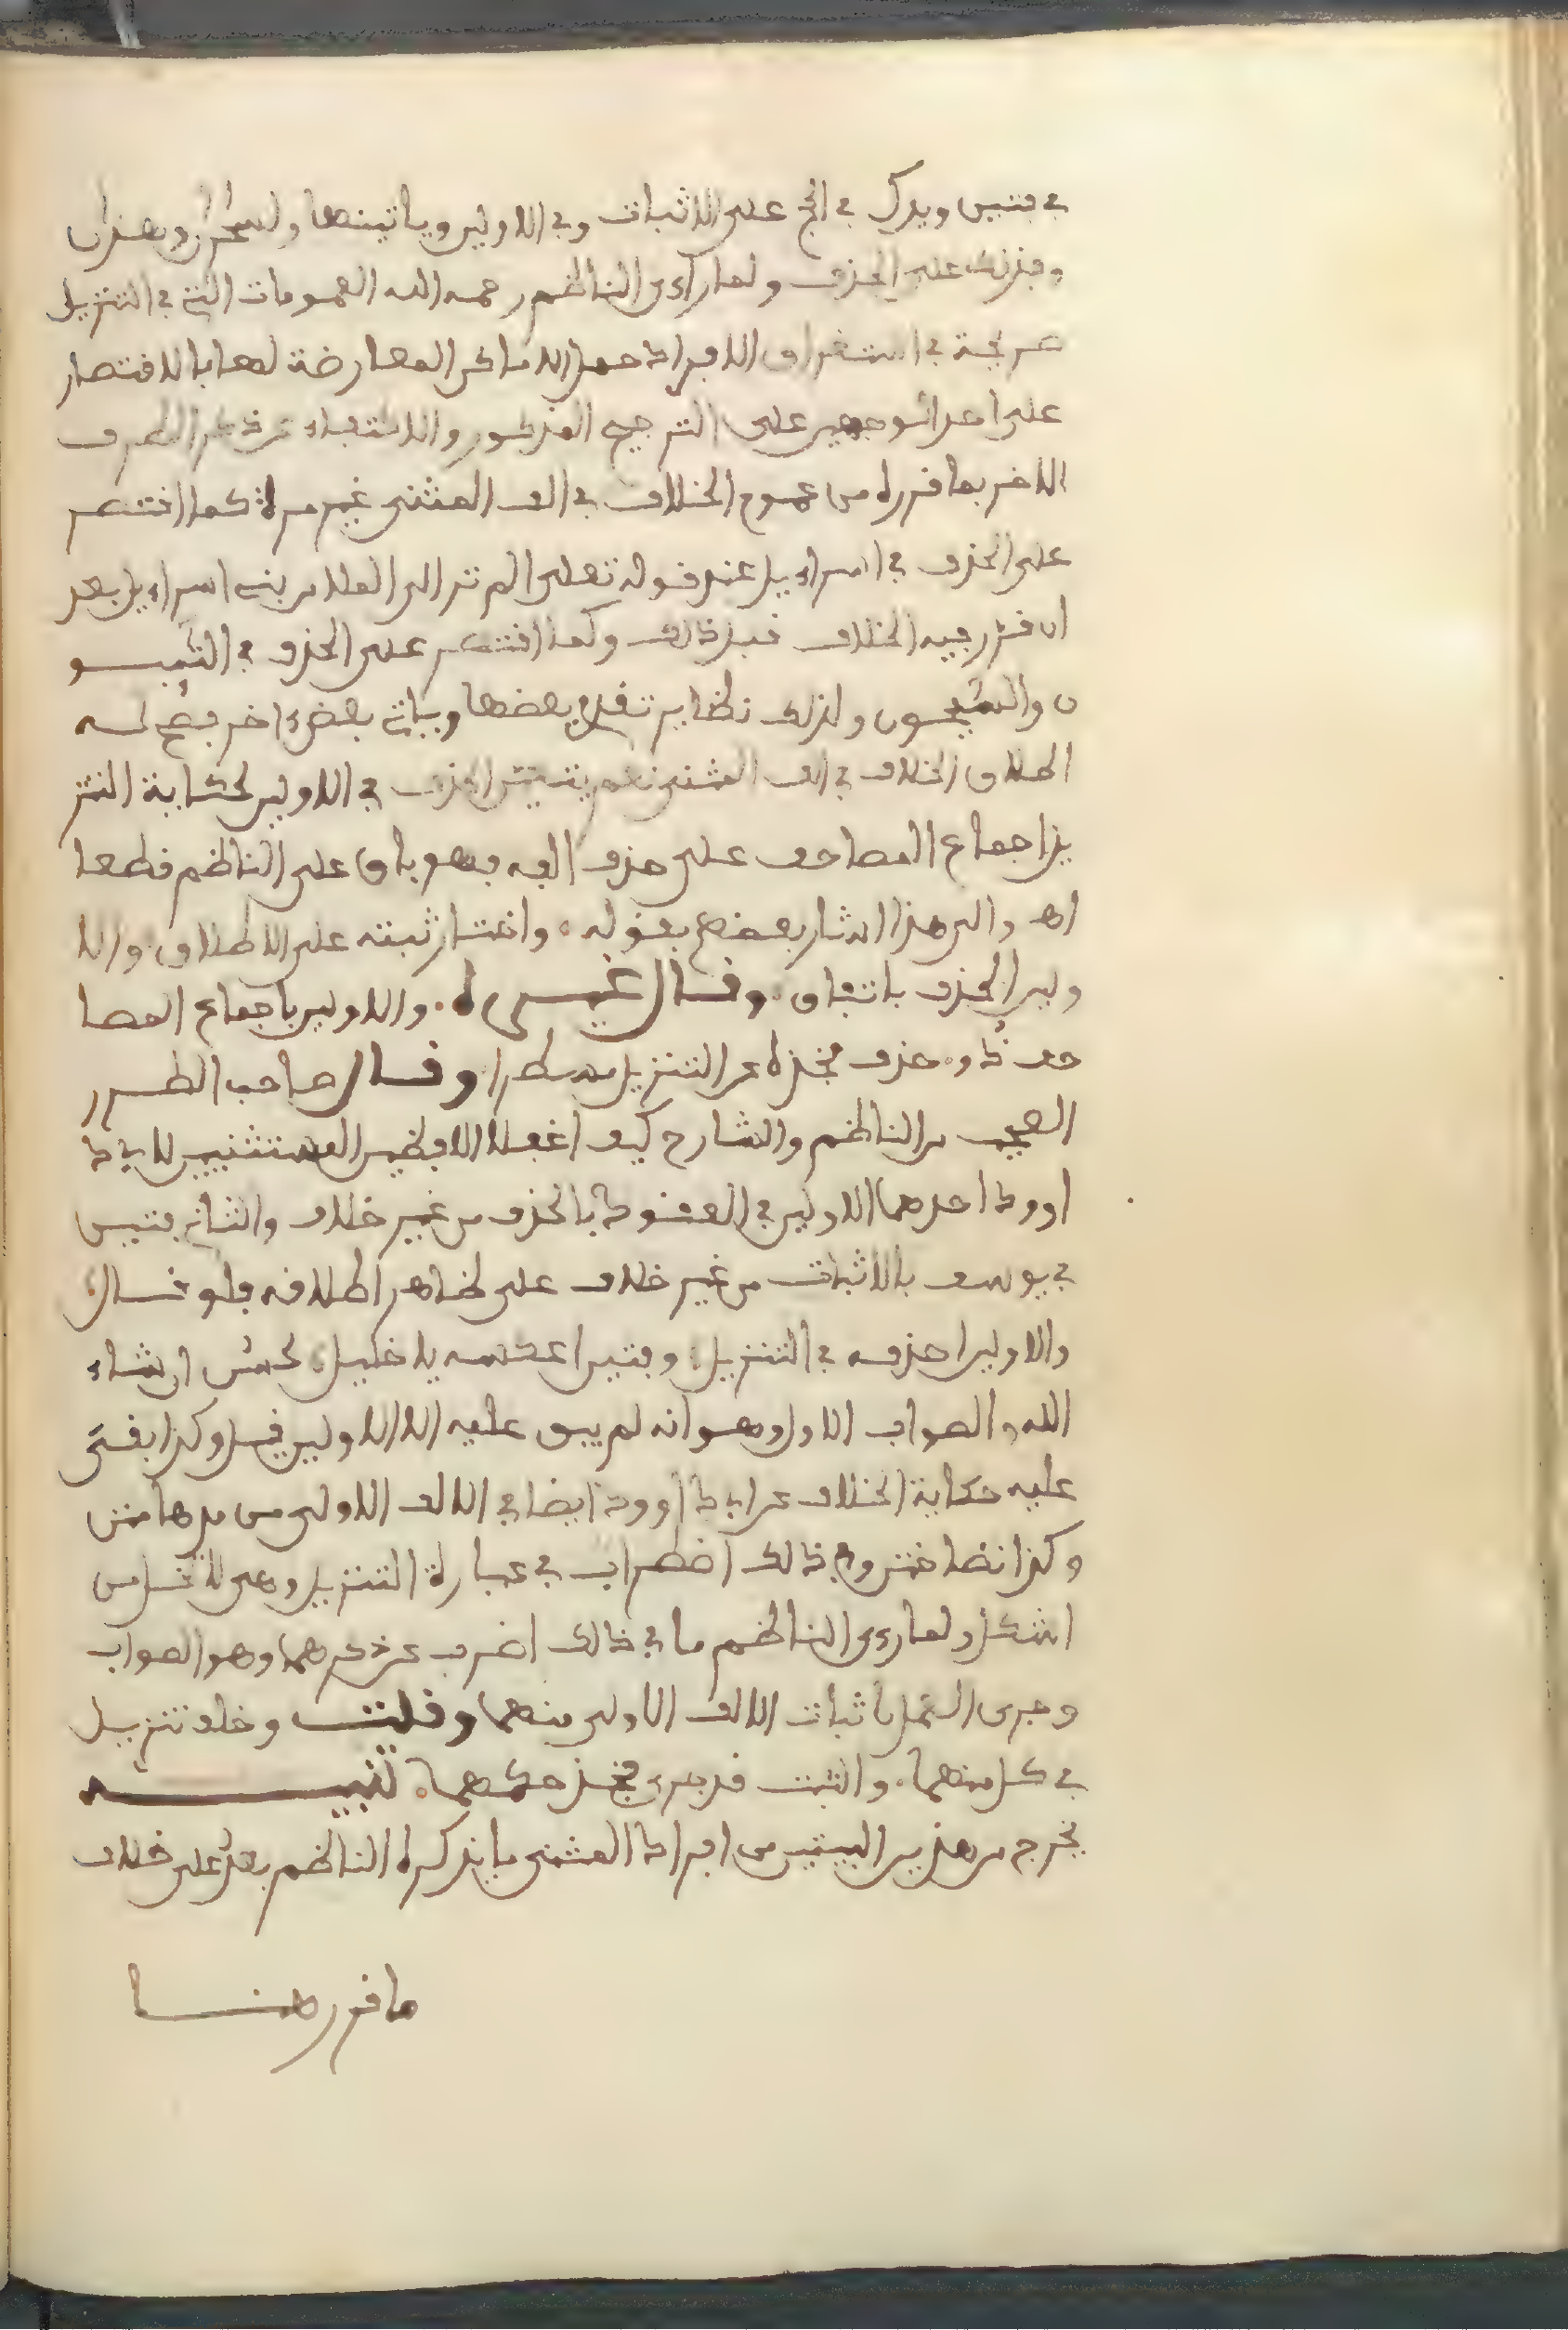 في فتين ويداك في الحج على الاثبات وفي الاولين وياتينها ولسحران وهذان
وفذنك على الحذف ولما رأى الناظم رحمه الله العمومات التي في التنزيل
صريحة في استغراق الافراد حمل الاماكن المعارضة لها بالاقتصار
على احد الوجهين على الترجيح المذكور والاكتفاء عن ذكر الطرف
الاخر بما قرره من عموم الخلاف في الف المثنى غير مرة كما اقتصر
على الحذف في اسراءيل عند قوله تعلى الم تر الى الملا من بني اسراءيل بعد
ان قرر فيه الخلاف قبل ذالك وكما اقتصر على الحذف في التٰيبـو
ن والسٰيحون ولذلك نظاير تقدم بعضها وياتي بعض ءاخر فصح لـه
اطلاق الخلاف في الف المثنى نعم يتعين الحذف في الاولين لحكاية التنز
يل اجماع المصاحف على حذف الفه فهو باق على الناظم قطعا
اهـ والى هذا اشار بعضهم بقوله . واختار ثبته على الاطلاق . والا
ولين الحذف باتفاق . وقـال غيـــره . والاولين باجماع المصا
حف ذو . حذف فخذه عن التنزيل مسطرا وقـال صاحب الطـرر
العجب من الناظم والشارح كيف اغفلا اللفظين المستثنيين لابي د
اوود احدهما الاولين في العقود بالحذف من غير خلاف والثاني فتيـن
في يوسف بالاثبات من غير خلاف على ظاهر اطلاقه فلو قـال .
والاولين احذفه في التنزيل . وفتين اعكسه يا خليل . لحسن ان شاء
الله والصواب الاول وهو انه لم يبق عليه الا الاولين قيل وكذا بقى
عليه حكاية الخلاف عن ابي داوود ايضا في الالف الاولى من مدهامتٰن
وكذا نضاختٰن وفي ذالك اضطراب في عبارة التنزيل وهي لا تخلو من
اشكال ولما رءى الناظم ما في ذالك اضرب عن ذكرهما وهو الصواب
وجرى العمل باثبات الالف الاولى منهما وقلتـــ وخلف تنزيـل
في كل منهما . والثبت قد جرى فخذ حكمهما . تنبيــــــــــه
يخرج من هذين البيتين من افراد المثنى ما يذكره الناظم بعد على خلاف
ما قرر هنـــــا